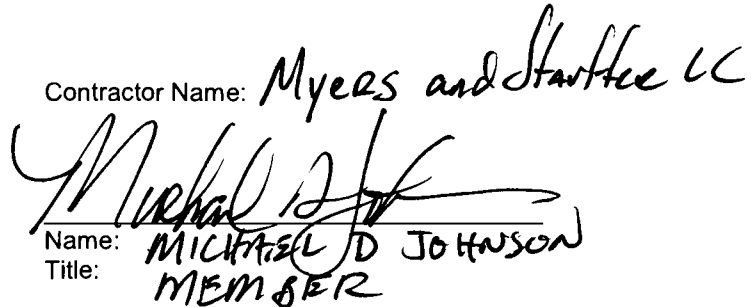 Contractor Name: Myers and Stauffer LC
Michael D Joh
Name: MICHAEL D JOHNSON
Title: MEMBER